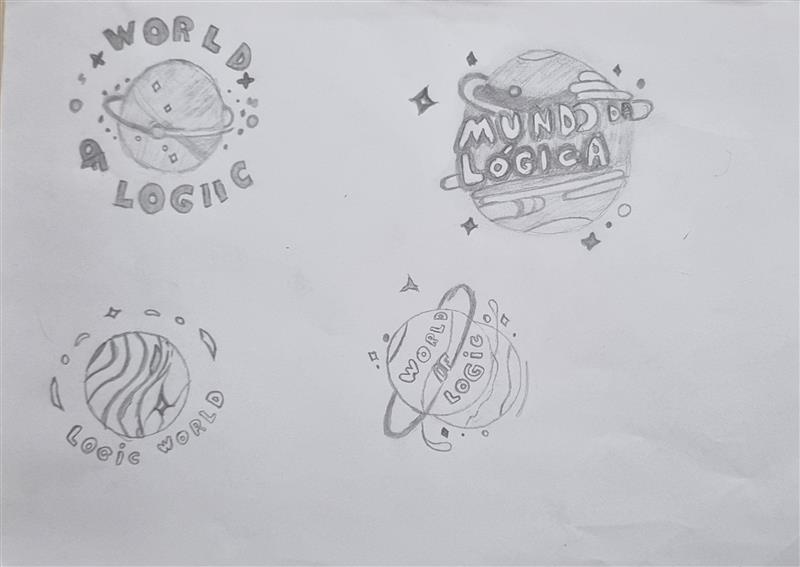 WORLD
OF
LOGIIC
MUNDO DA
LÓGICA
LOGIC WORLD
WORLD
OF
LOGIC